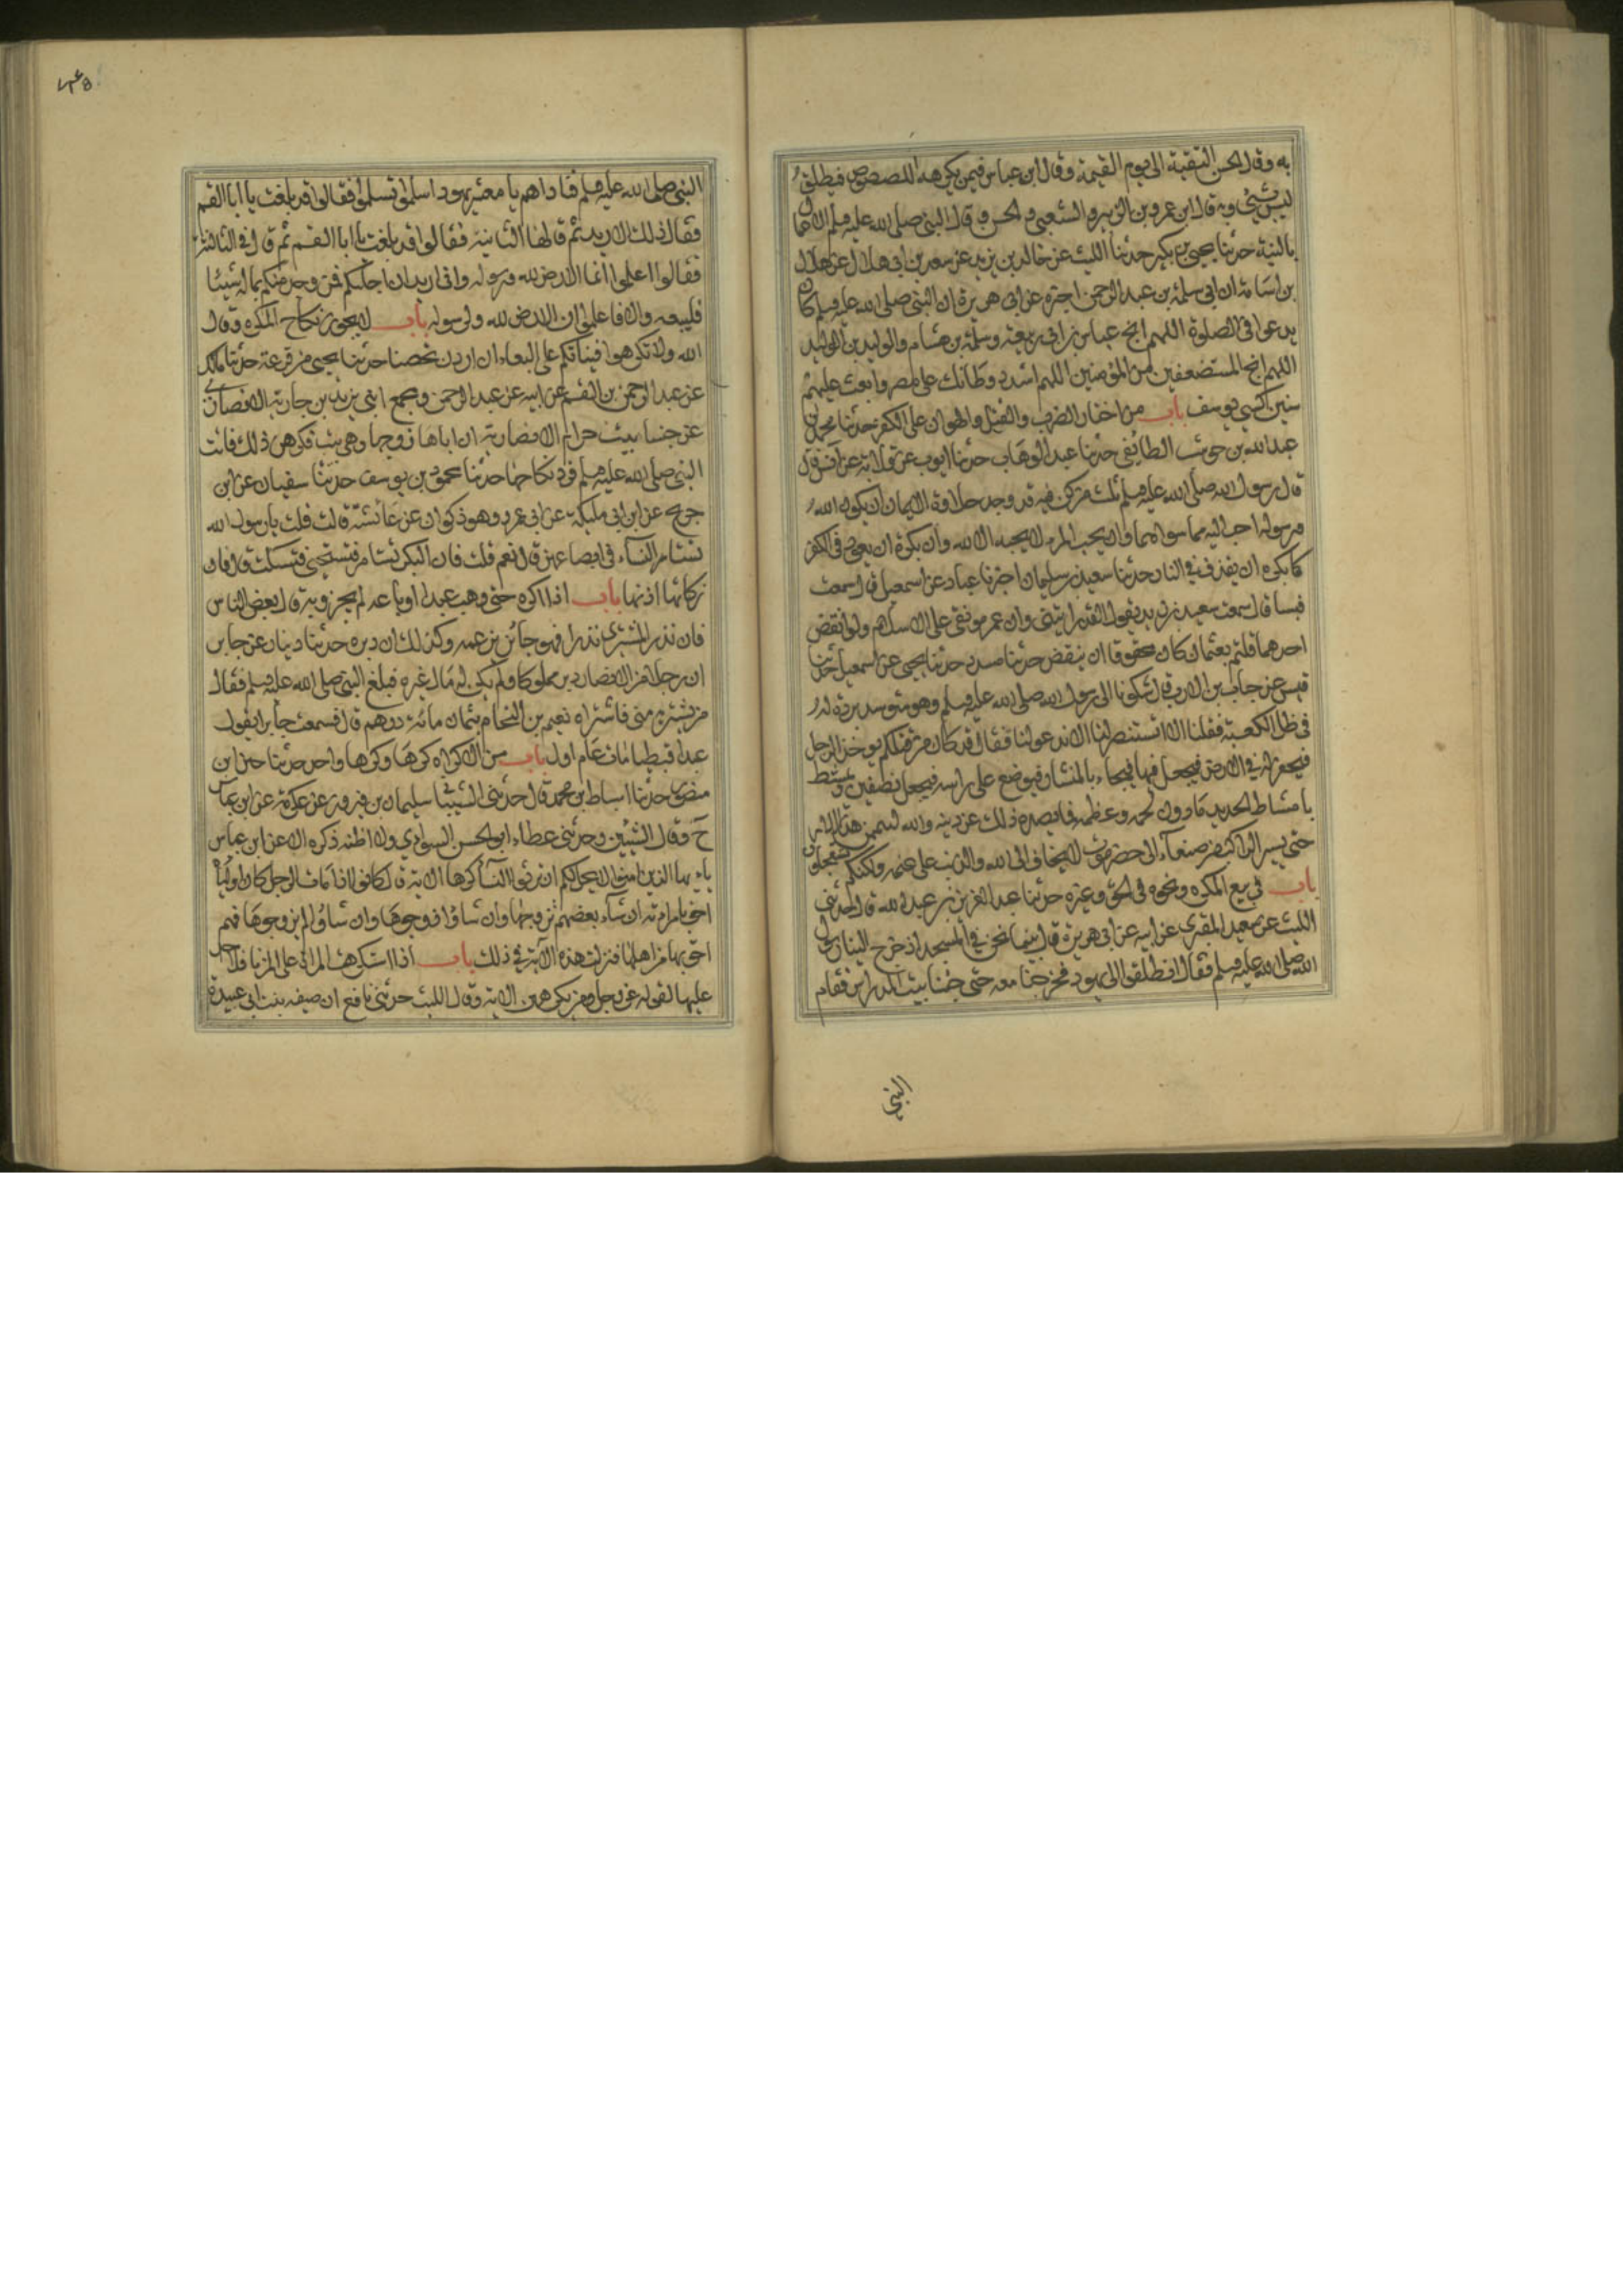 به وقال الحسن التقية الى يوم القيمة وقال ابن عباس فيمن يكرهه اللصوص فيطلق
ليس بشيء وبه قال ابن عمر وبن الزبير والشعبي والحسن وقال النبي صلى الله عليه وسلم الاعمال
بالنية حدثنا يحيى بن بكير حدثنا الليث عن خالد بن يزيد عن سعيد بن ابى هلال عن هلال
بن اسامة ان ابى سلمة بن عبد الرحمن اخبره عن ابى هريرة ان النبي صلى الله عليه وسلم كان
يدعوا فى الصلوة اللهم انج عياش بن ابى ربيعة وسلمة بن هشام والوليد بن الوليد
اللهم انج المستضعفين من المؤمنين اللهم اشدد وطأتك على مضر وابعث عليهم
سنين كسني يوسف باب من اختار الضرب والقتل والهوان على الكفر حدثنا محمد بن
عبد الله بن حوشب الطائفى حدثنا عبد الوهاب حدثنا ايوب عن ابى قلابة عن انس قال
قال رسول الله صلى الله عليه وسلم ثلث من كن فيه قد وجد حلاوة الايمان ان يكون الله
ورسوله احب اليه مما سواهما وان يحب المرء لا يحبه الا لله وان يكره ان يعود فى الكفر
كما يكره ان يقذف في النار حدثنا سعيد بن سليمان اخبرنا عباد عن اسمعيل قال سمعت
قيسا قال سمعت سعيد بن زيد يقول لقد رايتنى وان عمر موثقى على الاسلام ولو انقض
احد مما فعلتم بعثمان كان محقوقا ان ينقض حدثنا مسدد حدثنا يحيى عن اسمعيل حدثنا
قيس عن خباب بن الارت قال شكونا الى رسول الله صلى الله عليه وسلم وهو متوسد بردة له
فى ظل الكعبة فقلنا الا تستنصر لنا الا تدعو لنا فقال قد كان من قبلكم يوخذ الرجل
فيحفر له في الارض فيجعل فيها فيجاء بالمنشار فيوضع على راسه فيجعل نصفين ويمشط
بامشاط الحديد ما دون لحمه وعظمه فما يصده ذلك عن دينه والله ليتمن هذا الامر
حتى يسير الراكب من صنعاء الى حضرموت لا يخاف الا الله والذئب على غنمه ولكنكم تستعجلون
باب في بيع المكره ونحوه فى الحق وغيره حدثنا عبد العزيز بن عبد الله قال حدثنى
الليث عن سعيد المقبرى عن ابيه عن ابى هريرة قال بينما نحن في المسجد اذ خرج الينا رسول
الله صلى الله عليه وسلم فقال انطلقوا الى يهود فخرجنا معه حتى جئنا بيت المدراس فقام
النبي
النبى صلى الله عليه وسلم فناداهم يا معشر يهود اسلموا تسلموا فقالوا قد بلغت يا ابا القسم
فقال ذلك اريد ثم قالها الثانية فقالوا قد بلغت يا ابا القسم ثم قال فى الثالثة
فقالوا اعلموا انما الارض لله ورسوله وانى اريد ان اجليكم فمن وجد منكم بماله شيئا
فليبعه والا فاعلموا ان الارض لله ولرسوله باب لا يجوز نكاح المكره وقال
الله ولا تكرهوا فتياتكم على البغاء ان اردن تحصنا حدثنا يحيى بن قزعة حدثنا مالك
عن عبد الرحمن بن القسم عن ابيه عن عبد الرحمن ومجمع ابنى يزيد بن جارية الانصارى
عن خنسا بنت حزام الانصارية ان اباها زوجها وهى ثيب فكرهت ذلك فاتت
النبي صلى الله عليه وسلم فرد نكاحها حدثنا محمد بن يوسف حدثنا سفيان عن ابن
جريج عن ابن ابى مليكة عن ابى عمرو وهو ذكوان عن عائشة قالت قلت يا رسول الله
تستامر النساء فى ابضاعهن قال نعم قلت فان البكر تستامر فتستحيى فتسكت قال فان
سكاتها اذنها باب اذا اكره حتى وهب عبدا او باعه لم يجز وبه قال بعض الناس
فان نذر المشترى نذرا فهو جائز بزعمه وكذلك ان دبره حدثنا دينار عن جابر
ان رجلا من الانصار دبر مملوكا ولم يكن له مال غيره فبلغ النبي صلى الله عليه وسلم فقال
من يشتريه منى فاشتراه نعيم بن النحام بثمان مائة درهم قال فسمعت جابرا يقول
عبدا قبطيا مات عام اول باب من الاكراه كرها وكرها واحد حدثنا حسين ابن
منصور حدثنا اسباط بن محمد قال حدثنى الشيبانى سليمان بن فيروز عن عكرمة عن ابن عباس
ح وقال الشيبانى وحدثنى عطاء ابو الحسن السوادي ولا اظنه ذكره الا عن ابن عباس
يا ايها الذين امنوا لا يحل لكم ان ترثوا النساء كرها الاية قال كانوا اذا مات الرجل كان اولياؤه
احق بامراته ان شاء بعضهم تزوجها وان شاؤا زوجوها وان شاؤا لم يزوجوها فهم
احق بها من اهلها فنزلت هذه الآية في ذلك باب اذا استكرهت المراة على الزنا فلا حد
عليها لقوله عز وجل ومن يكرههن الاية وقال الليث حدثنى نافع ان صفيه بنت ابى عبيدة